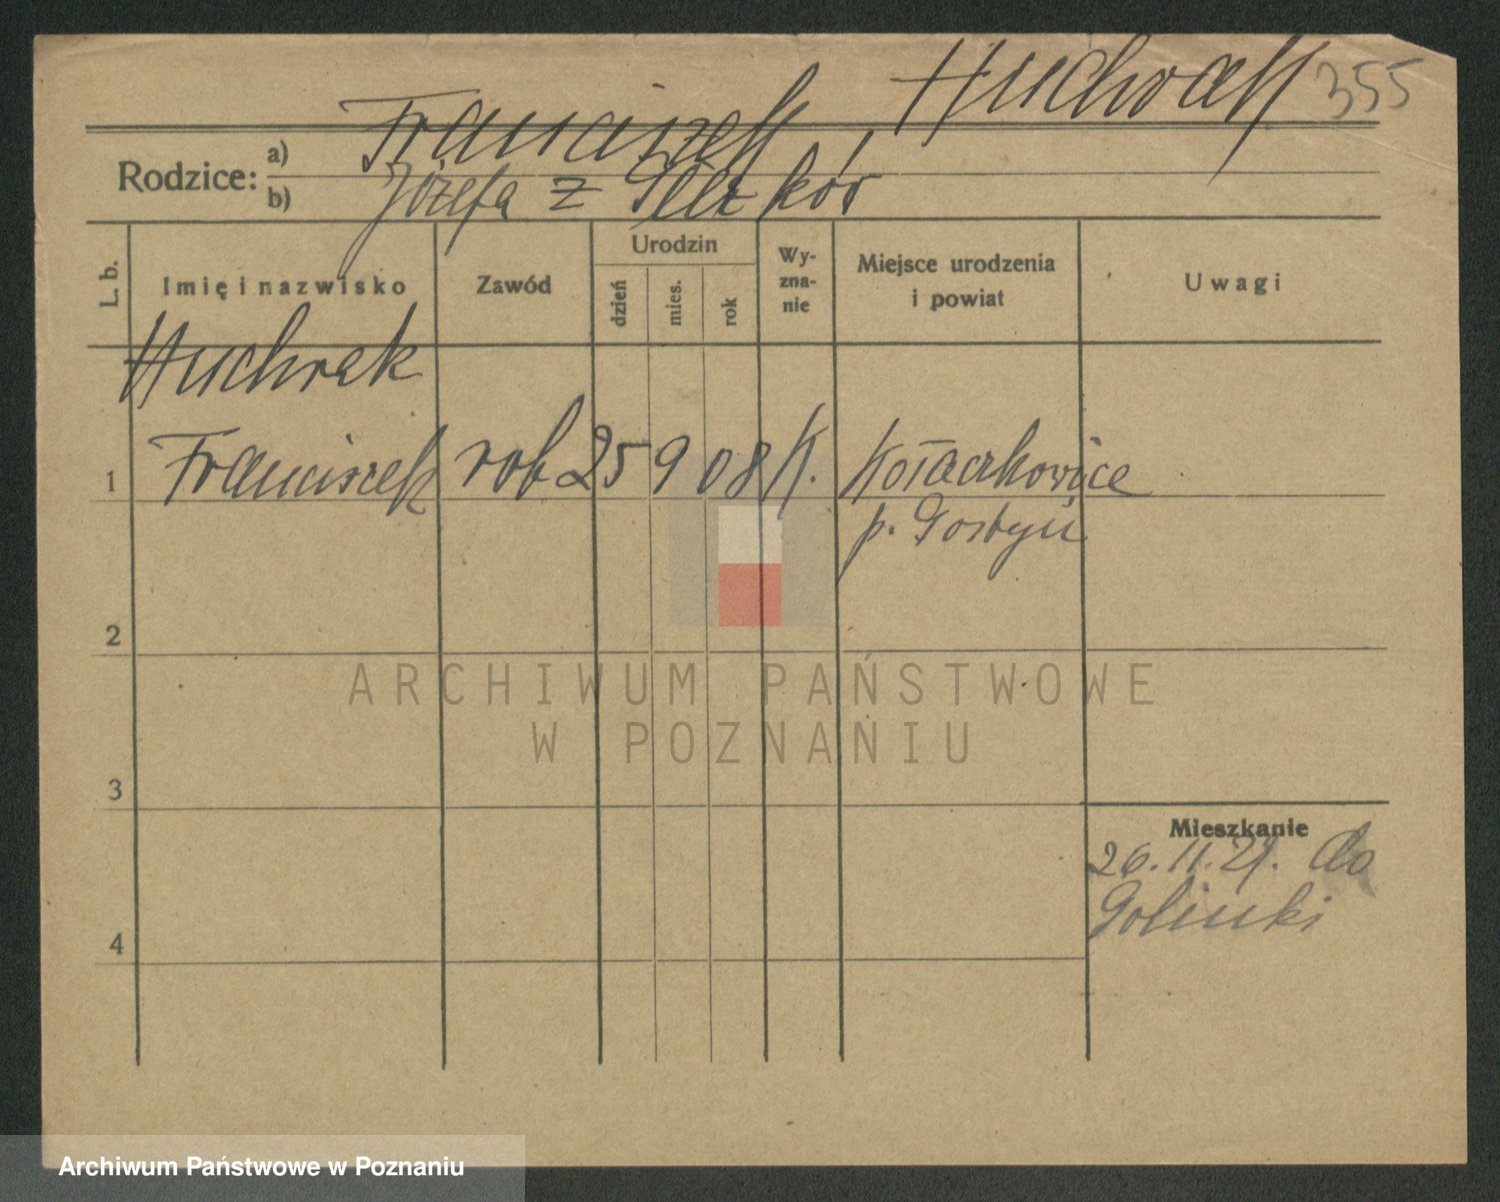 Huchrak 355
Franciszek
Rodzice: a)
b) Józefa z
L. b.
Imię i nazwisko
Zawód
Urodzin
dzień
mies.
rok
Wy-
zna-
nie
Miejsce urodzenia
i powiat
Uwagi
Huchrak
1 Franciszek rob 25 9 08 K. Kołaczkowice
p. Gostyń
2
3
4
Mieszkanie
26.11.29. do
Golinki
ARCHIWUM PAŃSTWOWE
W POZNANIU
Archiwum Państwowe w Poznaniu